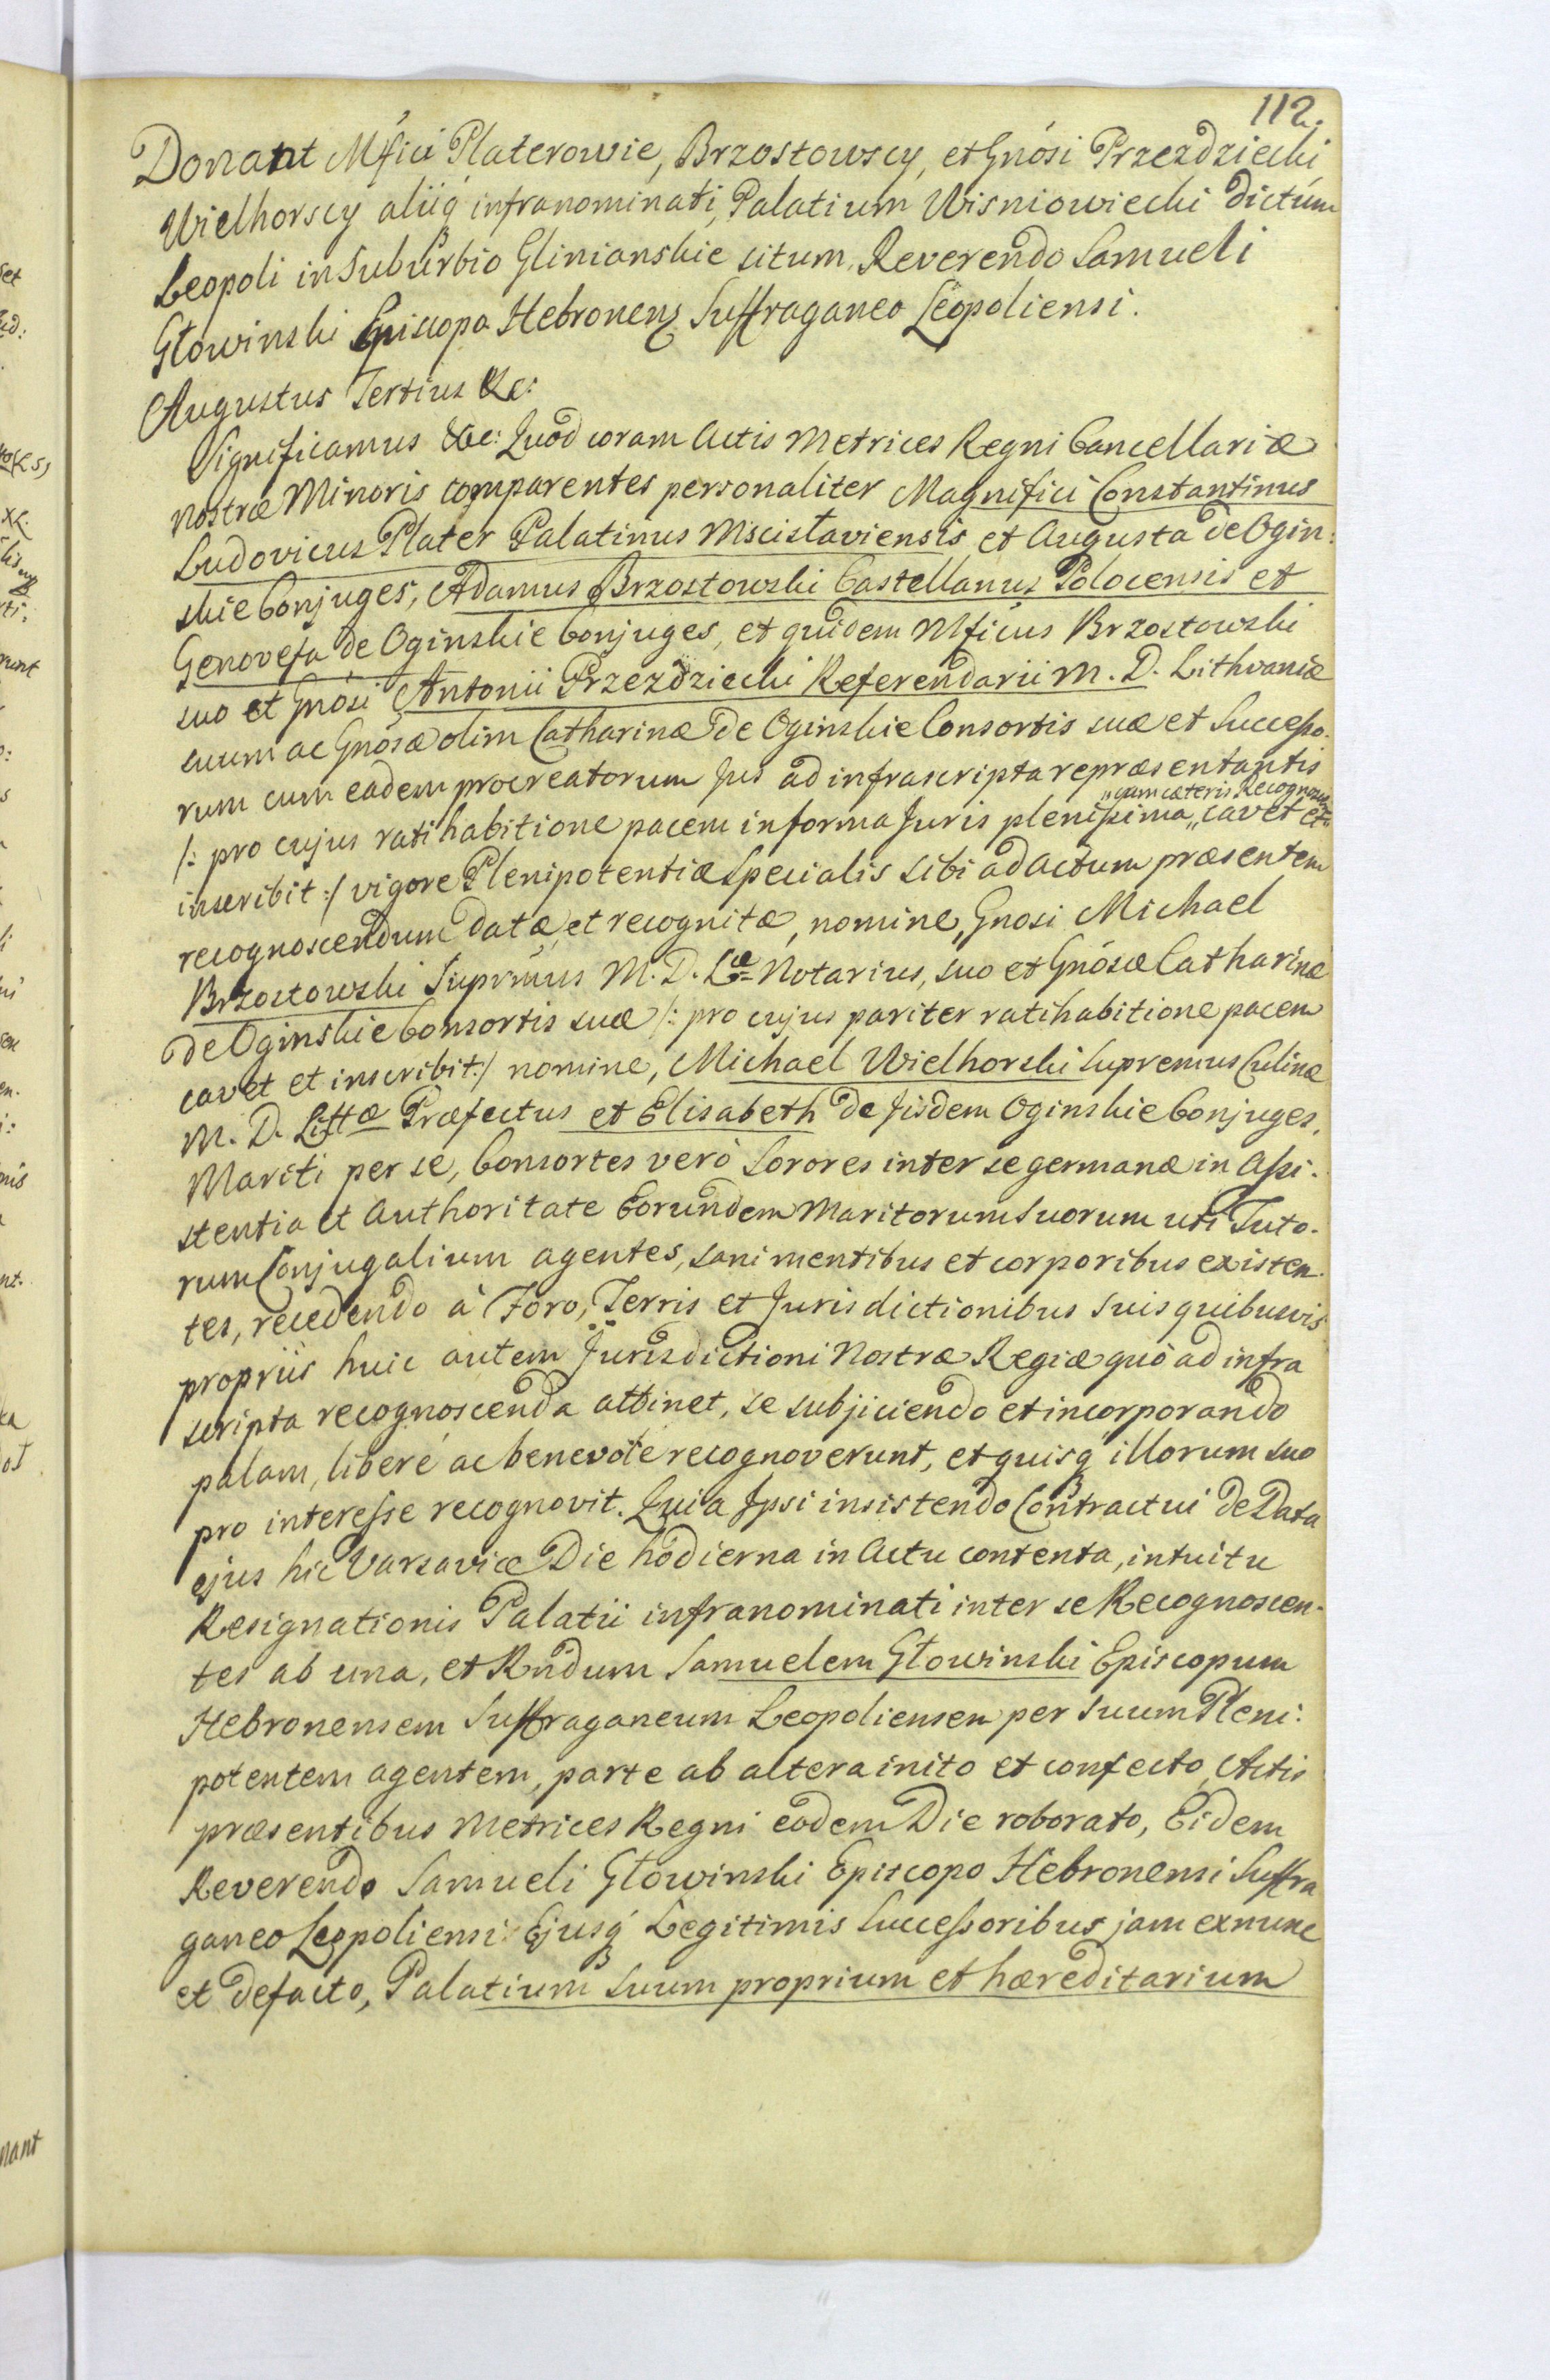 112.
Donant Mfici Platerowie, Brzostowscy, et Gnósi Przezdziecki,
Wielhorscy aliiq́ infranominati, Palatium Wisniowiecki dictum
Leopoli in Suburbio Glinianskie situm, Reverendo Samueli
Głowinski Episcopo Hebronens Suffraganeo Leopoliensi.
Augustus Tertius &c:
Significamus &c: Quod coram Actis Metrices Regni Cancellariæ
Nostræ Minoris comparentes personaliter Magnifici Constantinus
Ludovicus Plater Palatinus Mscislaviensis et Augusta de Ogin:
skie Conjuges, Adamus Brzostowski Castellanus Polocensis et
Genovefa de Oginskie Conjuges, et quidem Mficus Brzostowski
suo et Gnósi Antonii Przezdziecki Referendarii M. D. Lithvaniæ
suum ac Gnósæ olim Catharinæ de Oginskie Consortis suæ et Successo-
rum cum eadem procreatorum Jus ad infrascripta repræsentantis
/: pro cujus ratihabitione pacem in forma Juris plenissima „cavet et
„cum cæteris Recognoscen
inscribit :/ vigore Plenipotentiæ Specialis sibi ad Actum præsentem
recognoscendum datæ et recognitæ, nomine, Gnosi Michael
Brzostowski Suprmus M. D. Læ Notarius, suo et Gnósæ Catharinæ
de Oginskie Consortis suæ /: pro cujus pariter ratihabitione pacem
cavet et inscribit :/ nomine, Michael Wielhorski Supremus Culinæ
M. D. Littæ Præfectus et Elisabeth de Jisdem Oginskie Conjuges,
Mariti per se, Consortes verò Sorores inter se germanæ in Assi-
stentia et Authoritate Eorundem Maritorum Suorum uti Tuto-
rum Conjugalium agentes, sani mentibus et corporibus existen-
tes, recedendo à Foro, Terris et Jurisdictionibus suis quibusvis
propriis huic autem Jurisdictioni Nostræ Regiæ quò ad infra
scripta recognoscenda attinet, se subjiciendo et incorporando
palam, liberè ac benevolè recognoverunt, et quisq́ illorum suo
pro interesse recognovit. Quia Ipsi insistendo Contractui de Data
ejus hic Varsaviæ Die hodierna in Actu contenta, intuitu
Resignationis Palatii infranominati inter se Recognoscen-
tes ab una, et Rndum Samuelem Głowinski Episcopum
Hebronensem Suffraganeum Leopoliensem per suum Pleni:
potentem agentem, parte ab altera inito et confecto, Actis
præsentibus Metrices Regni eodem Die roborato, Eidem
Reverendo Samueli Głowinski Episcopo Hebronensi Suffra
ganeo Leopoliensi Ejusq́ Legitimis Successoribus jam exnunc
et defacto, Palatium suum proprium et hæreditarium